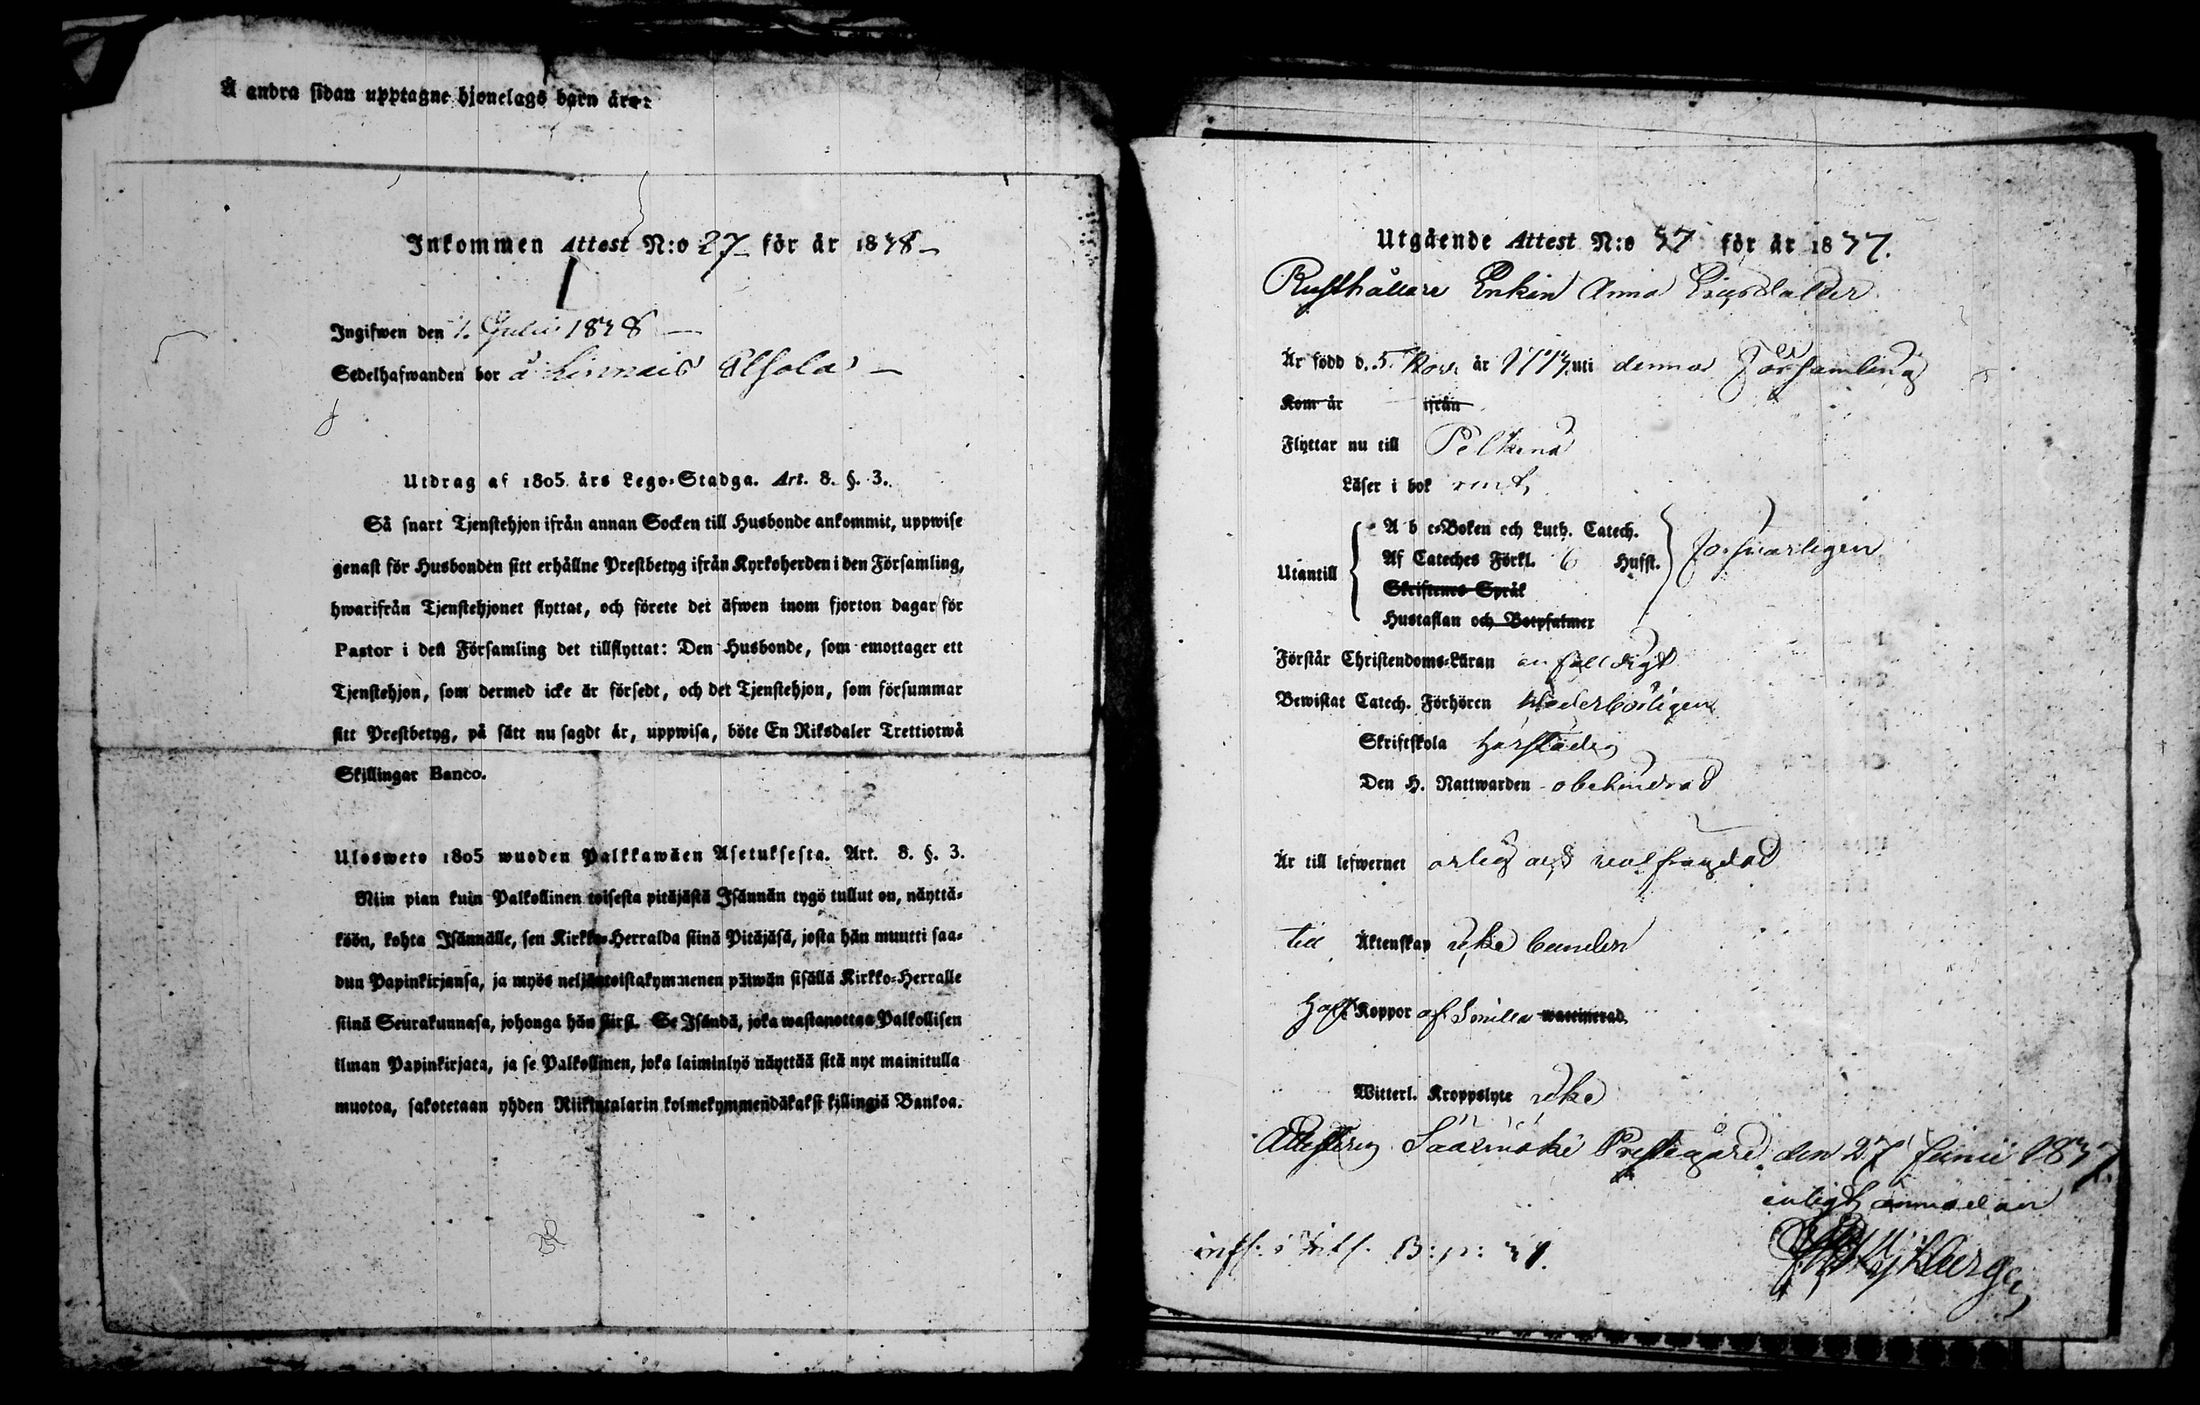 Å andra sidan upptagne hjonelags barn äro:
Inkommen Attest N:o 27 för år 1838
Ingifwen den 1. Julii 1838
Sedelhafwanden bor å Linnais Alhola
Utdrag af 1805 års Lego-Stadga. Art. 8. §. 3.
Så snart Tjenstehjon ifrån annan Socken till Husbonde ankommit, uppwise
genast för Husbonden sitt erhållne Prestbetyg ifrån Kyrkoherden i den Församling,
hwarifrån Tjenstehjonet flyttat, och förete det äfwen inom fjorton dagar för
Pastor i den Församling det tillflyttat: Den Husbonde, som emottager ett
Tjenstehjon, som dermed icke är försedt, och det Tjenstehjon, som försummar
sitt Prestbetyg, på sätt nu sagdt är, uppwisa, böte En Riksdaler Trettiotwå
Skillingar Banco.
Ulosweto 1805 wuoden Palkkawäen Asetuksesta. Art. 8. §. 3.
Niin pian kuin Palkollinen toisesta pitäjästä Isännän tygö tullut on, näyttä-
köön, kohta Isännälle, sen Kirkko-Herralda siinä Pitäjäsä, josta hän muutti saa-
dun Papinkirjansa, ja myös neljäntoistakymmenen päiwän sisällä Kirkko-Herralle
siinä Seurakunnasa, johonga hän siirsi. Se Isändä, joka wastanottaa Palkollisen
ilman Papinkirjata, ja se Palkollinen, joka laiminlyö näyttää sitä nyt mainitulla
muotoa, sakotetaan yhden Riikintalarin kolmekymmendäkaksi killingiä Bankoa.
Utgående Attest N:o 37 för år 1837.
Rusthållare Enkan Anna Ericsdotter
Är född d. 5 Nov. år 1773 uti denna Församling
Kom år ifrån
Flyttar nu till Pelkene
Läser i bok rent,
A b c-Boken och Luth. Catech.
Af Cateches Förkl. 6 Hufst.
Utantill försvarligen
Skriftenes Språk
Hustaflan och Botpsalmer
Förstår Christendoms-Läran enfalldigt
Bewistat Catech. Förhören wederbörligen
Skriftskola härstädes
Den H. Nattwarden obehindrad
Är till lefwernet ärlig och wälfrägdad
till Äktenskap icke bunden
haft Koppor af Smitta waccinerad
Witterl. Kroppslyte icke
Attesterar Sääxmäki Prestegård den 27 Junii 1837.
enligt anmodan